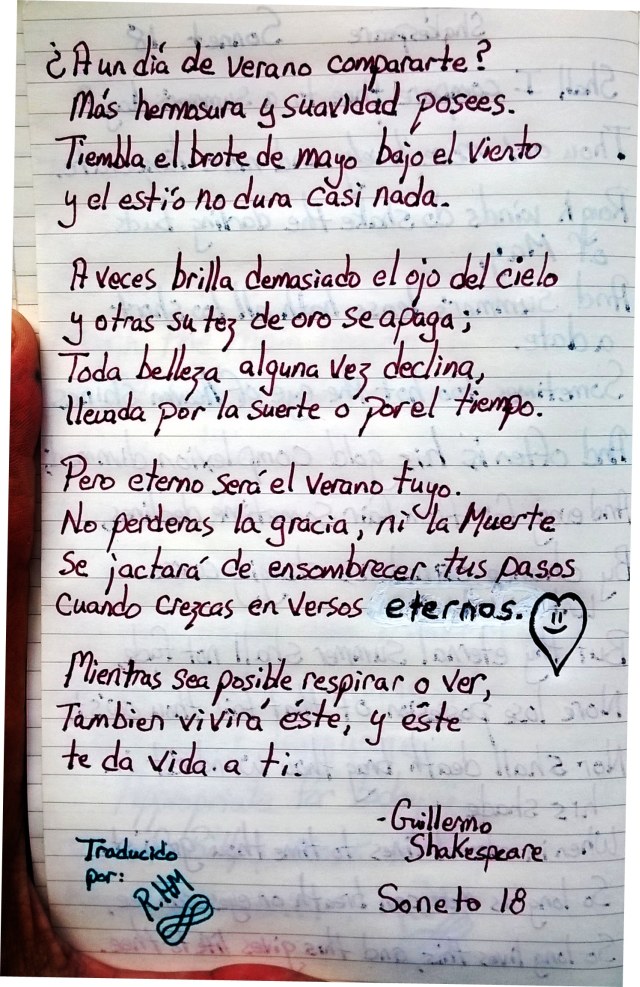 ¿A un día de verano compararte?
Más hermosura y suavidad posees.
Tiembla el brote de mayo bajo el viento
y el estío no dura casi nada.
A veces brilla demasiado el ojo del cielo
y otras su tez de oro se apaga;
Toda belleza alguna vez declina,
llevada por la suerte o por el tiempo.
Pero eterno será el verano tuyo.
No perderas la gracia, ni la Muerte
se jactará de ensombrecer tus pasos
Cuando crezcas en versos eternos.
Mientras sea posible respirar o ver,
Tambien vivirá éste, y éste
te da vida a ti.
-Guillermo
Shakespeare
Soneto 18
Traducido
por:
R.HM